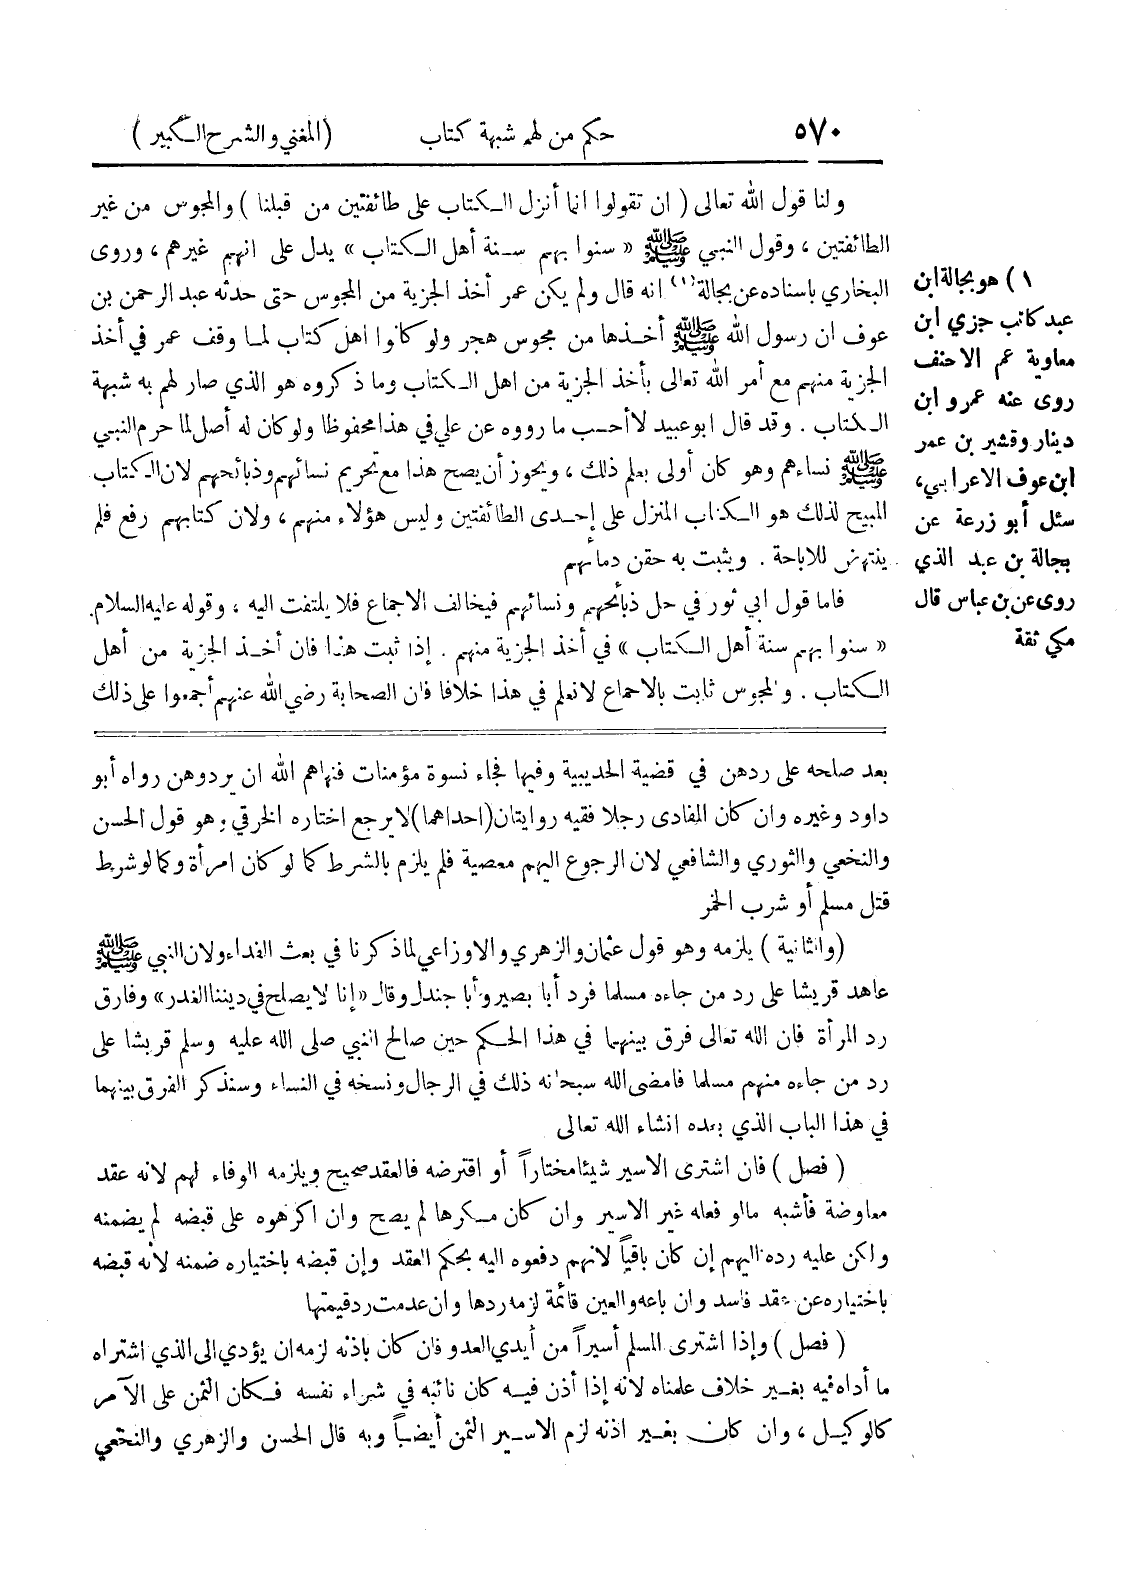 ٥٧٠ حكم من لهم شبهة كتاب (المغني والشرح الكبير)
ولنا قول الله تعالى ( ان تقولوا انما أنزل الكتاب على طائفتين من قبلنا ) والمجوس من غير
الطائفتين ، وقول النبي ﷺ « سنوا بهم سنة أهل الكتاب » يدل على انهم غيرهم ، وروى
البخاري باسناده عن بجالة(١) انه قال ولم يكن عمر أخذ الجزية من المجوس حتى حدثه عبد الرحمن بن
عوف ان رسول الله ﷺ أخذها من مجوس هجر ولو كانوا اهل كتاب لما وقف عمر في أخذ
الجزية منهم مع أمر الله تعالى بأخذ الجزية من اهل الكتاب وما ذكروه هو الذي صار لهم به شبهة
الكتاب . وقد قال ابو عبيد لا أحسب ما رووه عن علي في هذا محفوظا ولو كان له أصل لما حرم النبي
ﷺ نساءهم وهو كان أولى بعلم ذلك ، ويجوز أن يصح هذا مع تحريم نسائهم وذبائحهم لان الكتاب
المبيح لذلك هو الكتاب المنزل على إحدى الطائفتين وليس هؤلاء منهم ، ولان كتابهم رفع فلم
ينتهض للاباحة . ويثبت به حقن دمائهم
فاما قول ابي ثور في حل ذبائحهم ونسائهم فيخالف الاجماع فلا يلتفت اليه ، وقوله عليه السلام.
« سنوا بهم سنة أهل الكتاب » في أخذ الجزية منهم . إذا ثبت هذا فان أخذ الجزية من أهل
الكتاب . والمجوس ثابت بالاجماع لا نعلم في هذا خلافا فان الصحابة رضي الله عنهم أجمعوا على ذلك
١ ) هو بجالة ابن
عبد كاتب جزي ابن
معاوية عم الاحنف
روى عنه عمرو ابن
دينار وقشير بن عمر
ابن عوف الاعرابي،
سئل أبو زرعة عن
بجالة بن عبد الذي
روى عن بن عباس قال
مكي ثقة
بعد صلحه على ردهن في قضية الحديبية وفيها فجاء نسوة مؤمنات فنهاهم الله ان يردوهن رواه أبو
داود وغيره وان كان المفادى رجلا ففيه روايتان (احداهما) لا يرجع اختاره الخرقي وهو قول الحسن
والنخعي والثوري والشافعي لان الرجوع اليهم معصية فلم يلزم بالشرط كما لو كان امرأة وكما لو شرط
قتل مسلم أو شرب الخمر
(والثانية ) يلزمه وهو قول عثمان والزهري والاوزاعي لما ذكرنا في بعث الفداء ولان النبي ﷺ
عاهد قريشا على رد من جاءه مسلما فرد أبا بصير وأبا جندل وقال «إنا لا يصلح في ديننا الغدر» وفارق
رد المرأة فان الله تعالى فرق بينهما في هذا الحكم حين صالح النبي صلى الله عليه وسلم قريشا على
رد من جاءه منهم مسلما فامضى الله سبحانه ذلك في الرجال ونسخه في النساء وسنذكر الفرق بينهما
في هذا الباب الذي بعده انشاء الله تعالى
( فصل ) فان اشترى الاسير شيئا مختاراً أو اقترضه فالعقد صحيح ويلزمه الوفاء لهم لانه عقد
معاوضة فأشبه مالو فعله غير الاسير وان كان مكرها لم يصح وان اكرهوه على قبضه لم يضمنه
ولكن عليه رده اليهم إن كان باقياً لانهم دفعوه اليه بحكم العقد وإن قبضه باختياره ضمنه لأنه قبضه
باختياره عن عقد فاسد وان باعه والعين قائمة لزمه ردها وان عدمت رد قيمتها
( فصل ) وإذا اشترى المسلم أسيراً من أيدي العدو فان كان باذنه لزمه ان يؤدي الى الذي اشتراه
ما أداه فيه بغير خلاف علمناه لانه إذا أذن فيه كان نائبه في شراء نفسه فكان الثمن على الآمر
كالوكيل ، وان كان بغير اذنه لزم الاسير الثمن أيضاً وبه قال الحسن والزهري والنخعي